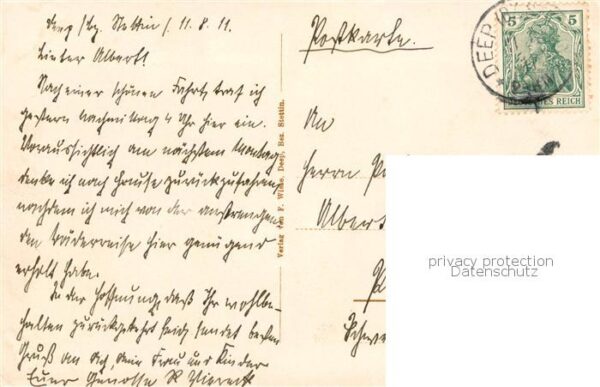 Deep /bz. Stettin / 11. 8. 11.
Lieber Albert!
Nach einer schönen Fahrt, traf ich
gestern Nachmittag 4 Uhr hier ein.
Voraussichtlich am nächsten Montag
denke ich nach Hause zurückzufahren,
nachdem ich mich von der anstrengen
den Bäderreise hier genügend
erholt habe.
In der Hoffnung, daß Ihr wohlbe-
halten zurückgekehrt seid, sendet besten
Gruß an Dich, Deine Frau und Kinder
Euer Genosse R
Verlag von F. Deep, Bez. Stettin.
Postkarte.
An
Herrn
Albert
Schwe
DEEP
5 5
DEUTSCHES REICH
privacy protection
Datenschutz